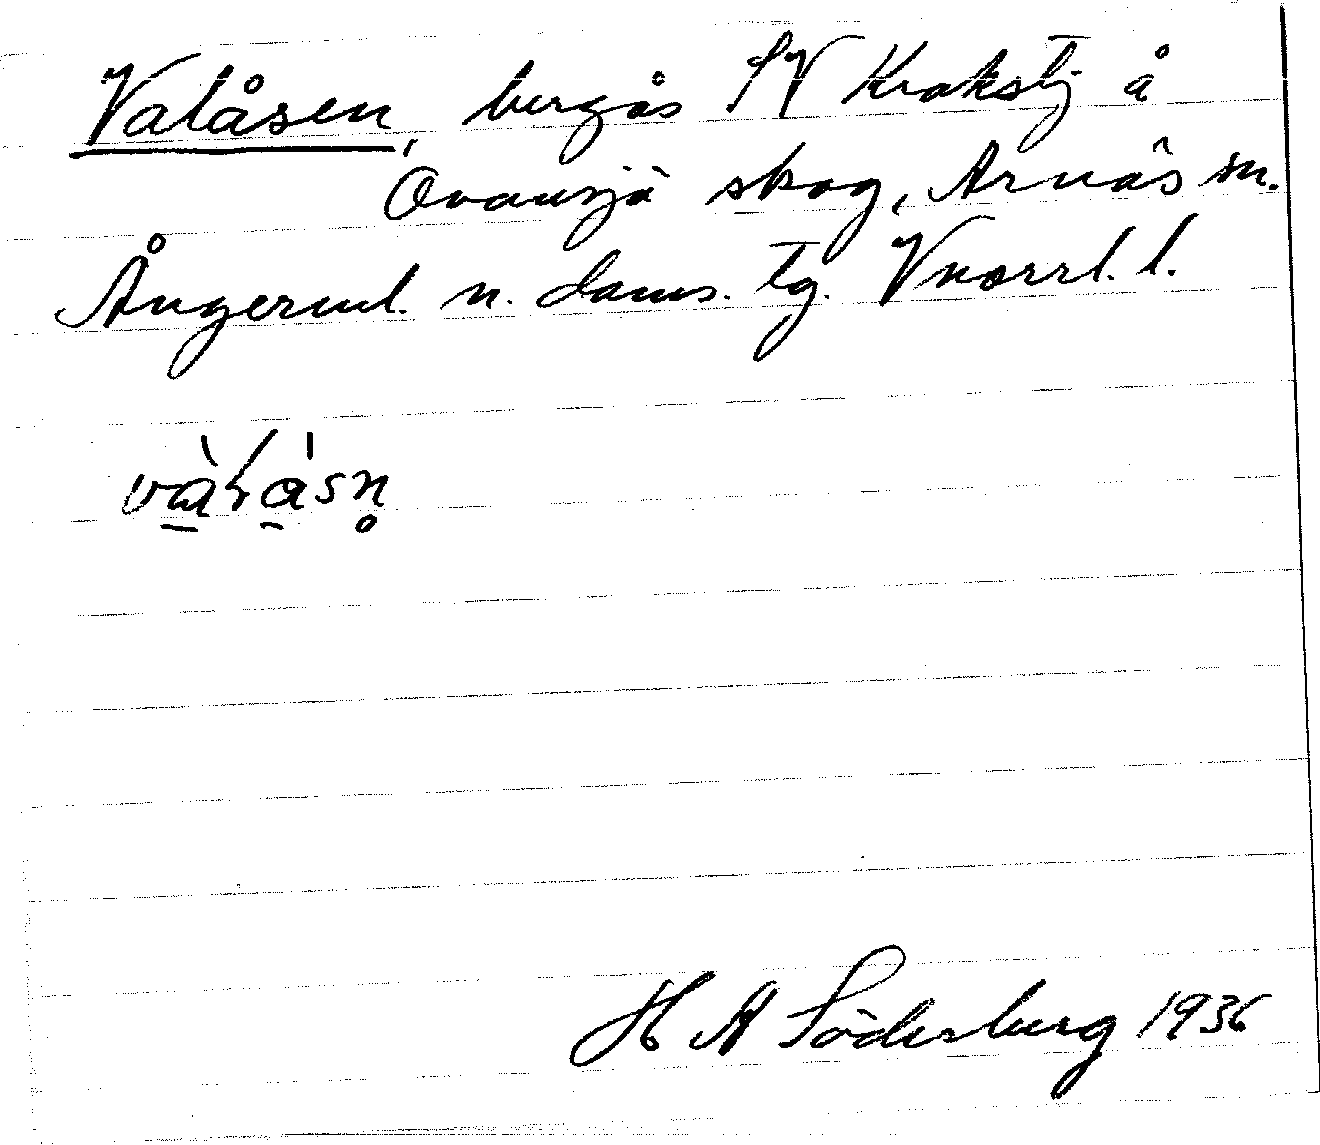 Valåsen, bergås SV Krakstj å
Ovansjö skog, Arnäs sn.
Ångerml. n. doms. tg. Vnorrl. l.
H A Söderberg 1936